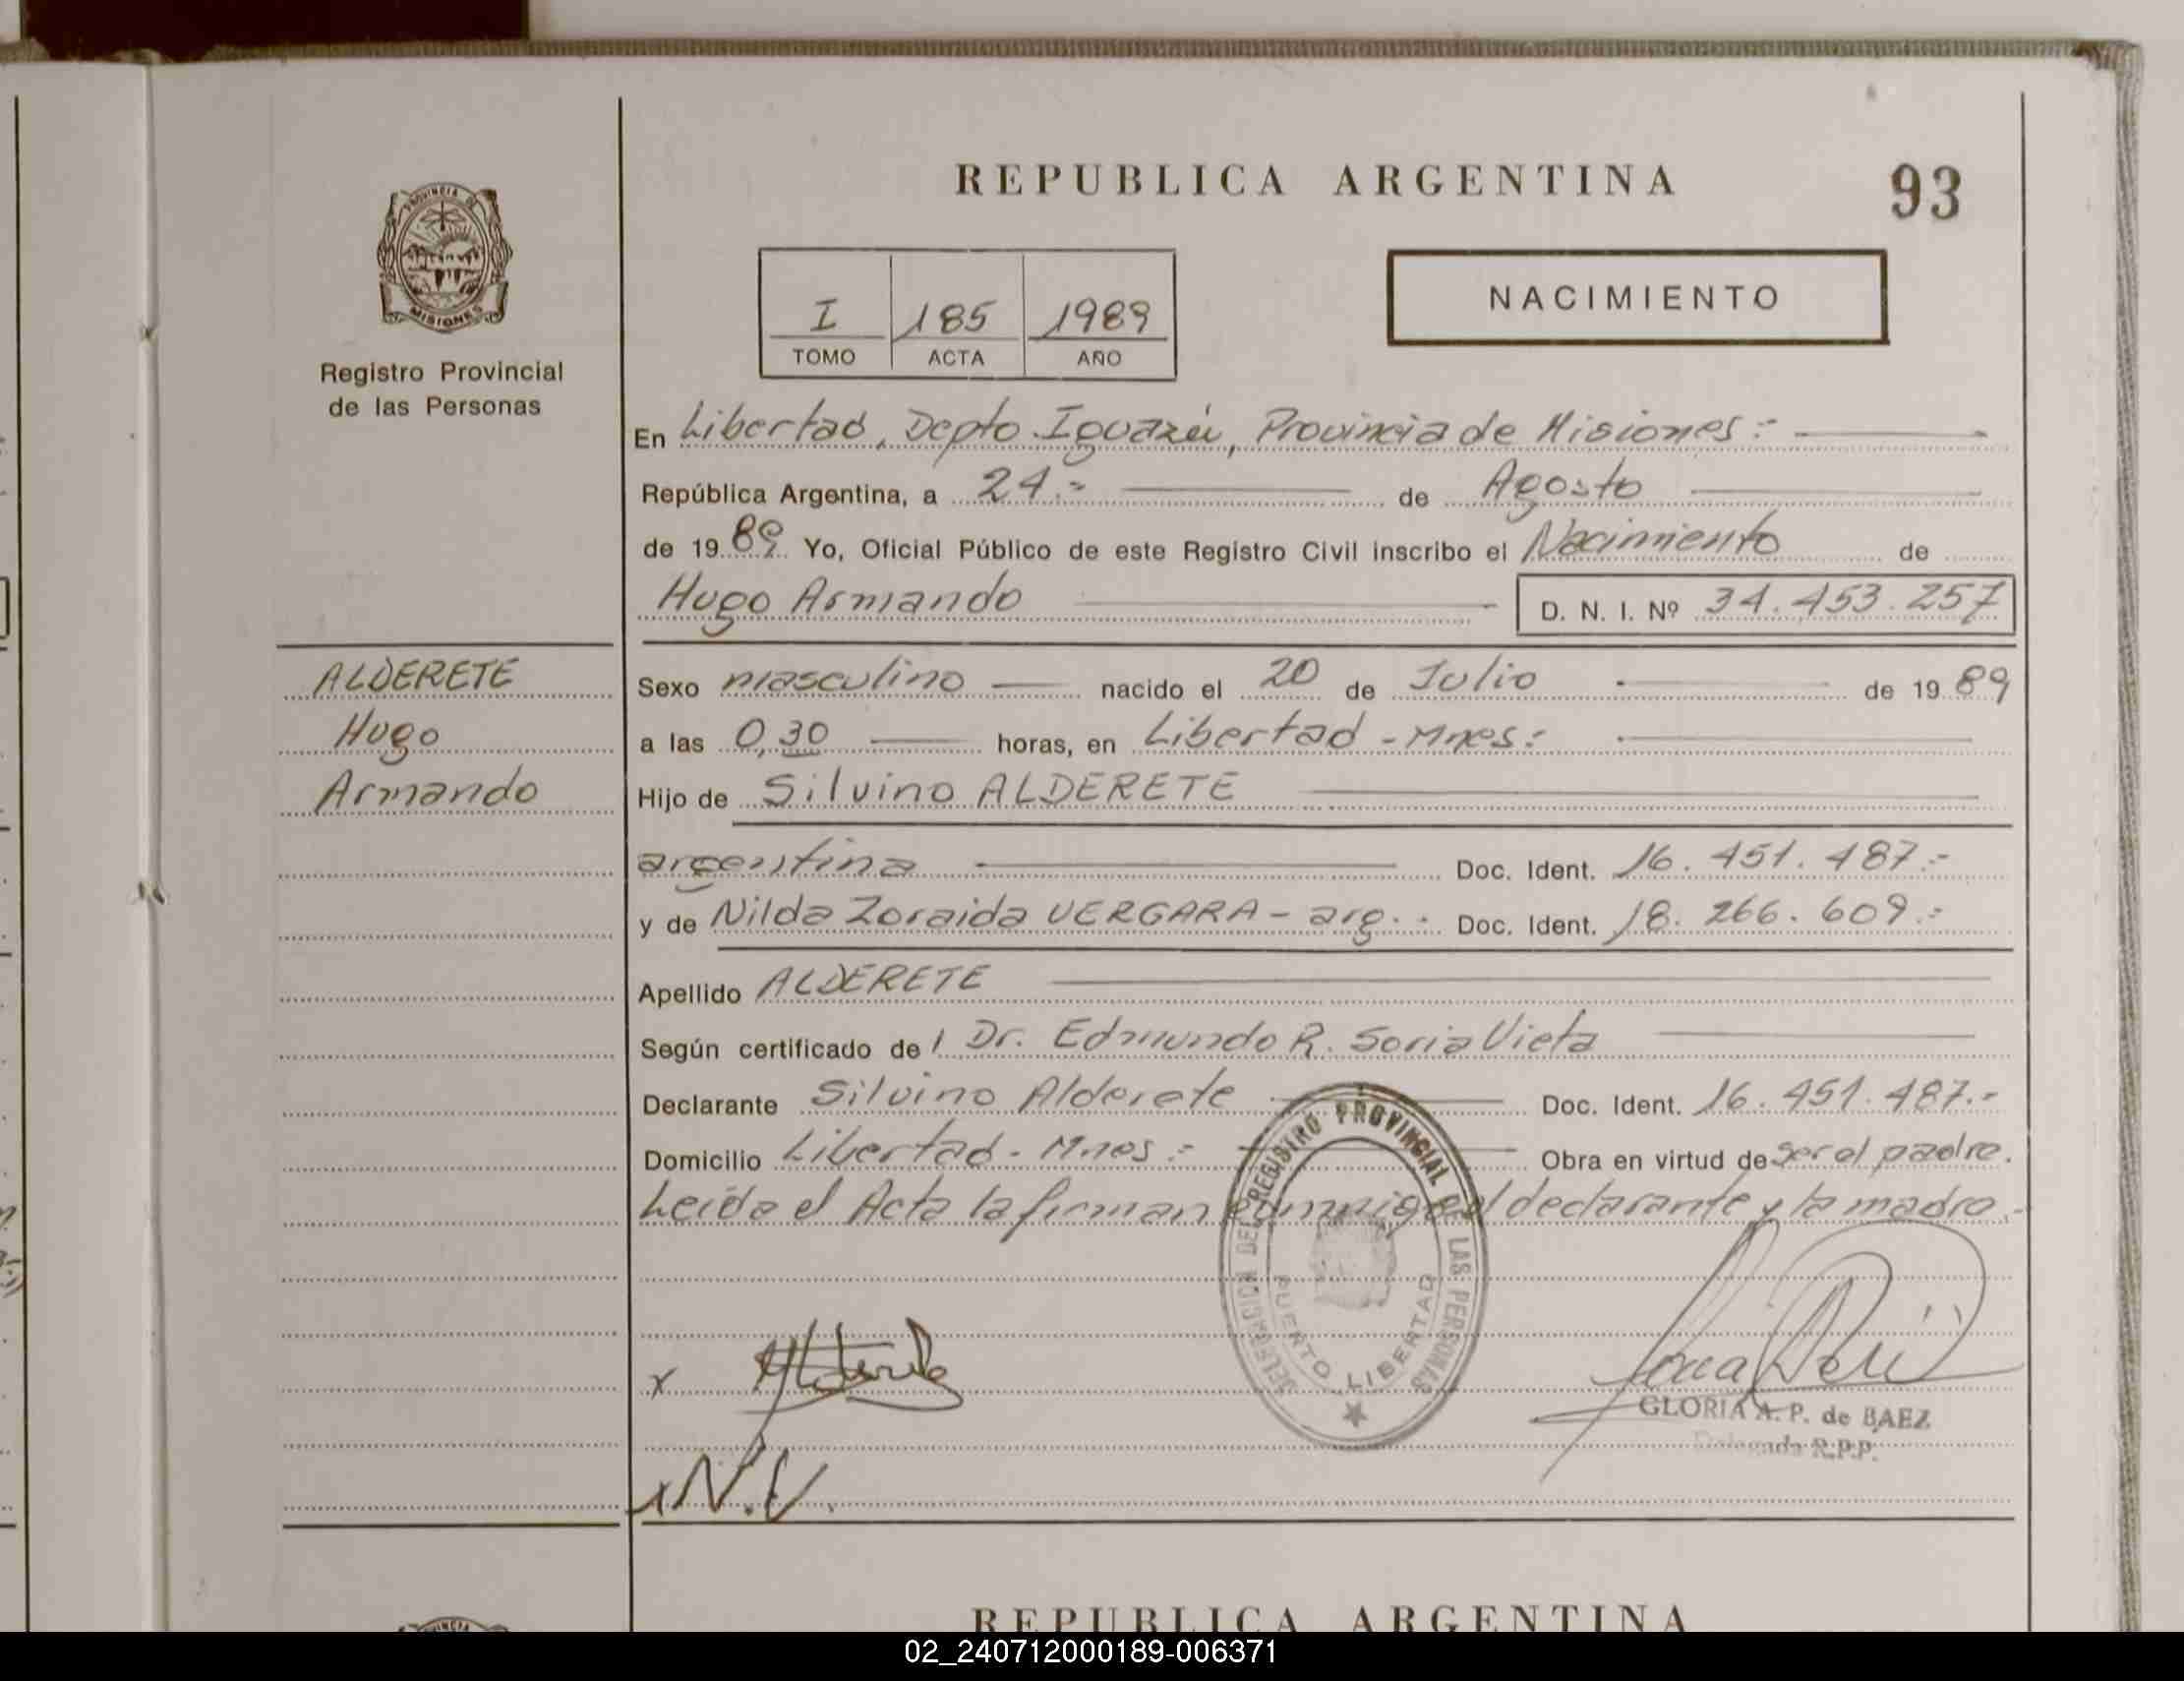 REPUBLICA ARGENTINA
93
PROVINCIA DE
MISIONES
Registro Provincial
de las Personas
I 185 1989
TOMO ACTA AÑO
NACIMIENTO
En Libertad, Depto Iguazú, Provincia de Misiones:-
República Argentina, a 24.- de Agosto
de 1989 Yo, Oficial Público de este Registro Civil inscribo el Nacimiento de
Hugo Armando D. N. I. Nº 34.453.257
ALDERETE
Hugo
Armando
Sexo masculino nacido el 20 de Julio de 1989
a las 0,30 horas, en Libertad - Mnes:
Hijo de Silvino ALDERETE
argentina Doc. Ident. 16.451.487.-
y de Nilda Zoraida VERGARA - arg. Doc. Ident. 18.266.609.-
Apellido ALDERETE
Según certificado del Dr. Edmundo R. Soria Vieta
Declarante Silvino Alderete Doc. Ident. 16.451.487.-
Domicilio Libertad - Mnes:- Obra en virtud de ser el padre.
Leída el Acta la firman conmigo el declarante y la madre.-
DELEGACION DEL REGISTRO PROVINCIAL DE LAS PERSONAS
PUERTO LIBERTAD
x Alderete
x N.V.
GLORIA A. P. de BAEZ
Delegada R.P.P.
REPUBLICA ARGENTINA
02_240712000189-006371